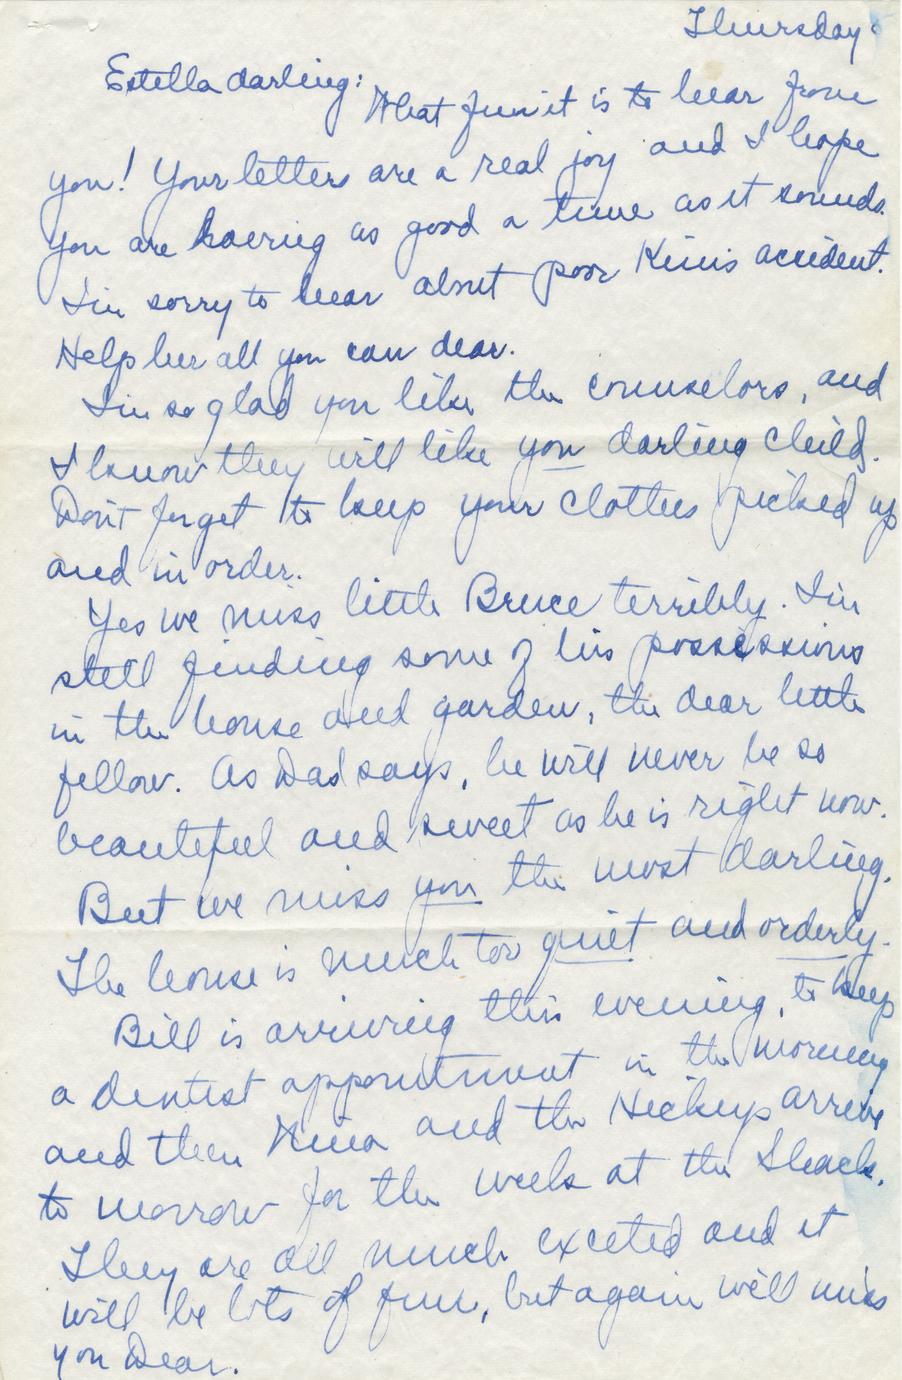 Thursday
Estella darling:
What fun it is to hear from
you! Your letters are a real joy and I hope
you are having as good a time as it sounds.
I'm sorry to hear about poor Kim's accident.
Help her all you can dear.
I'm so glad you like the counselors, and
I know they will like you darling child.
Don't forget to keep your clothes picked up
and in order.
Yes we miss little Bruce terribly. I'm
still finding some of his possessions
in the house and garden, the dear little
fellow. As Dad says, he will never be so
beautiful and sweet as he is right now.
But we miss you the most darling.
The house is much too quiet and orderly.
Bill is arriving this evening, to keep
a dentist appointment in the morning
and then Nina and the Hickeys arrive
to morrow for the week at the Shack.
They are all much excited and it
will be lots of fun, but again we'll miss
you Dear.